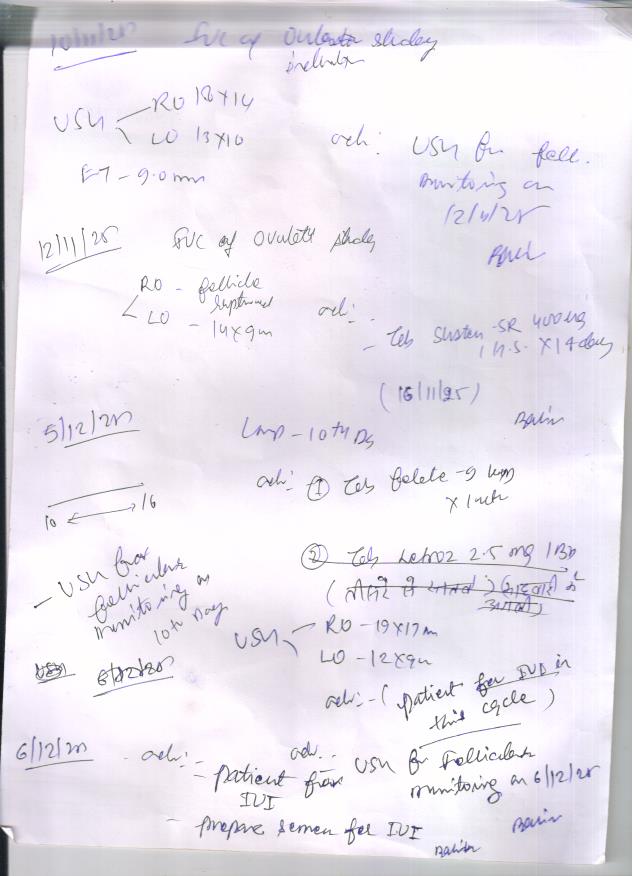 10/11/25 FUC of Ovulation study
USG RO 18x14
LO 13x10
ET - 9.0 mm
adv: USG for foll.
monitoring on
12/11/25
12/11/25 FUC of Ovulation study
RO - follicle
ruptured
LO - 14x9mm
adv: -
- Tab Susten-SR 400mg
1 H.S. x 14 days
(16/11/25)
5/12/25 LMP - 10th Day
adv: ① Tab Folate
② Tab Letroz 2.5 mg 1 BD
10 ↔ 16
- USG for
follicular
monitoring on
10th Day
USG RO - 19x17m
LO - 12x9m
6/12/25
adv: - (patient for IUI in
this cycle)
adv. - USG for Follicular
monitoring on 6/12/25
6/12/25 adv: -
- patient for
IUI
- prepare semen for IUI